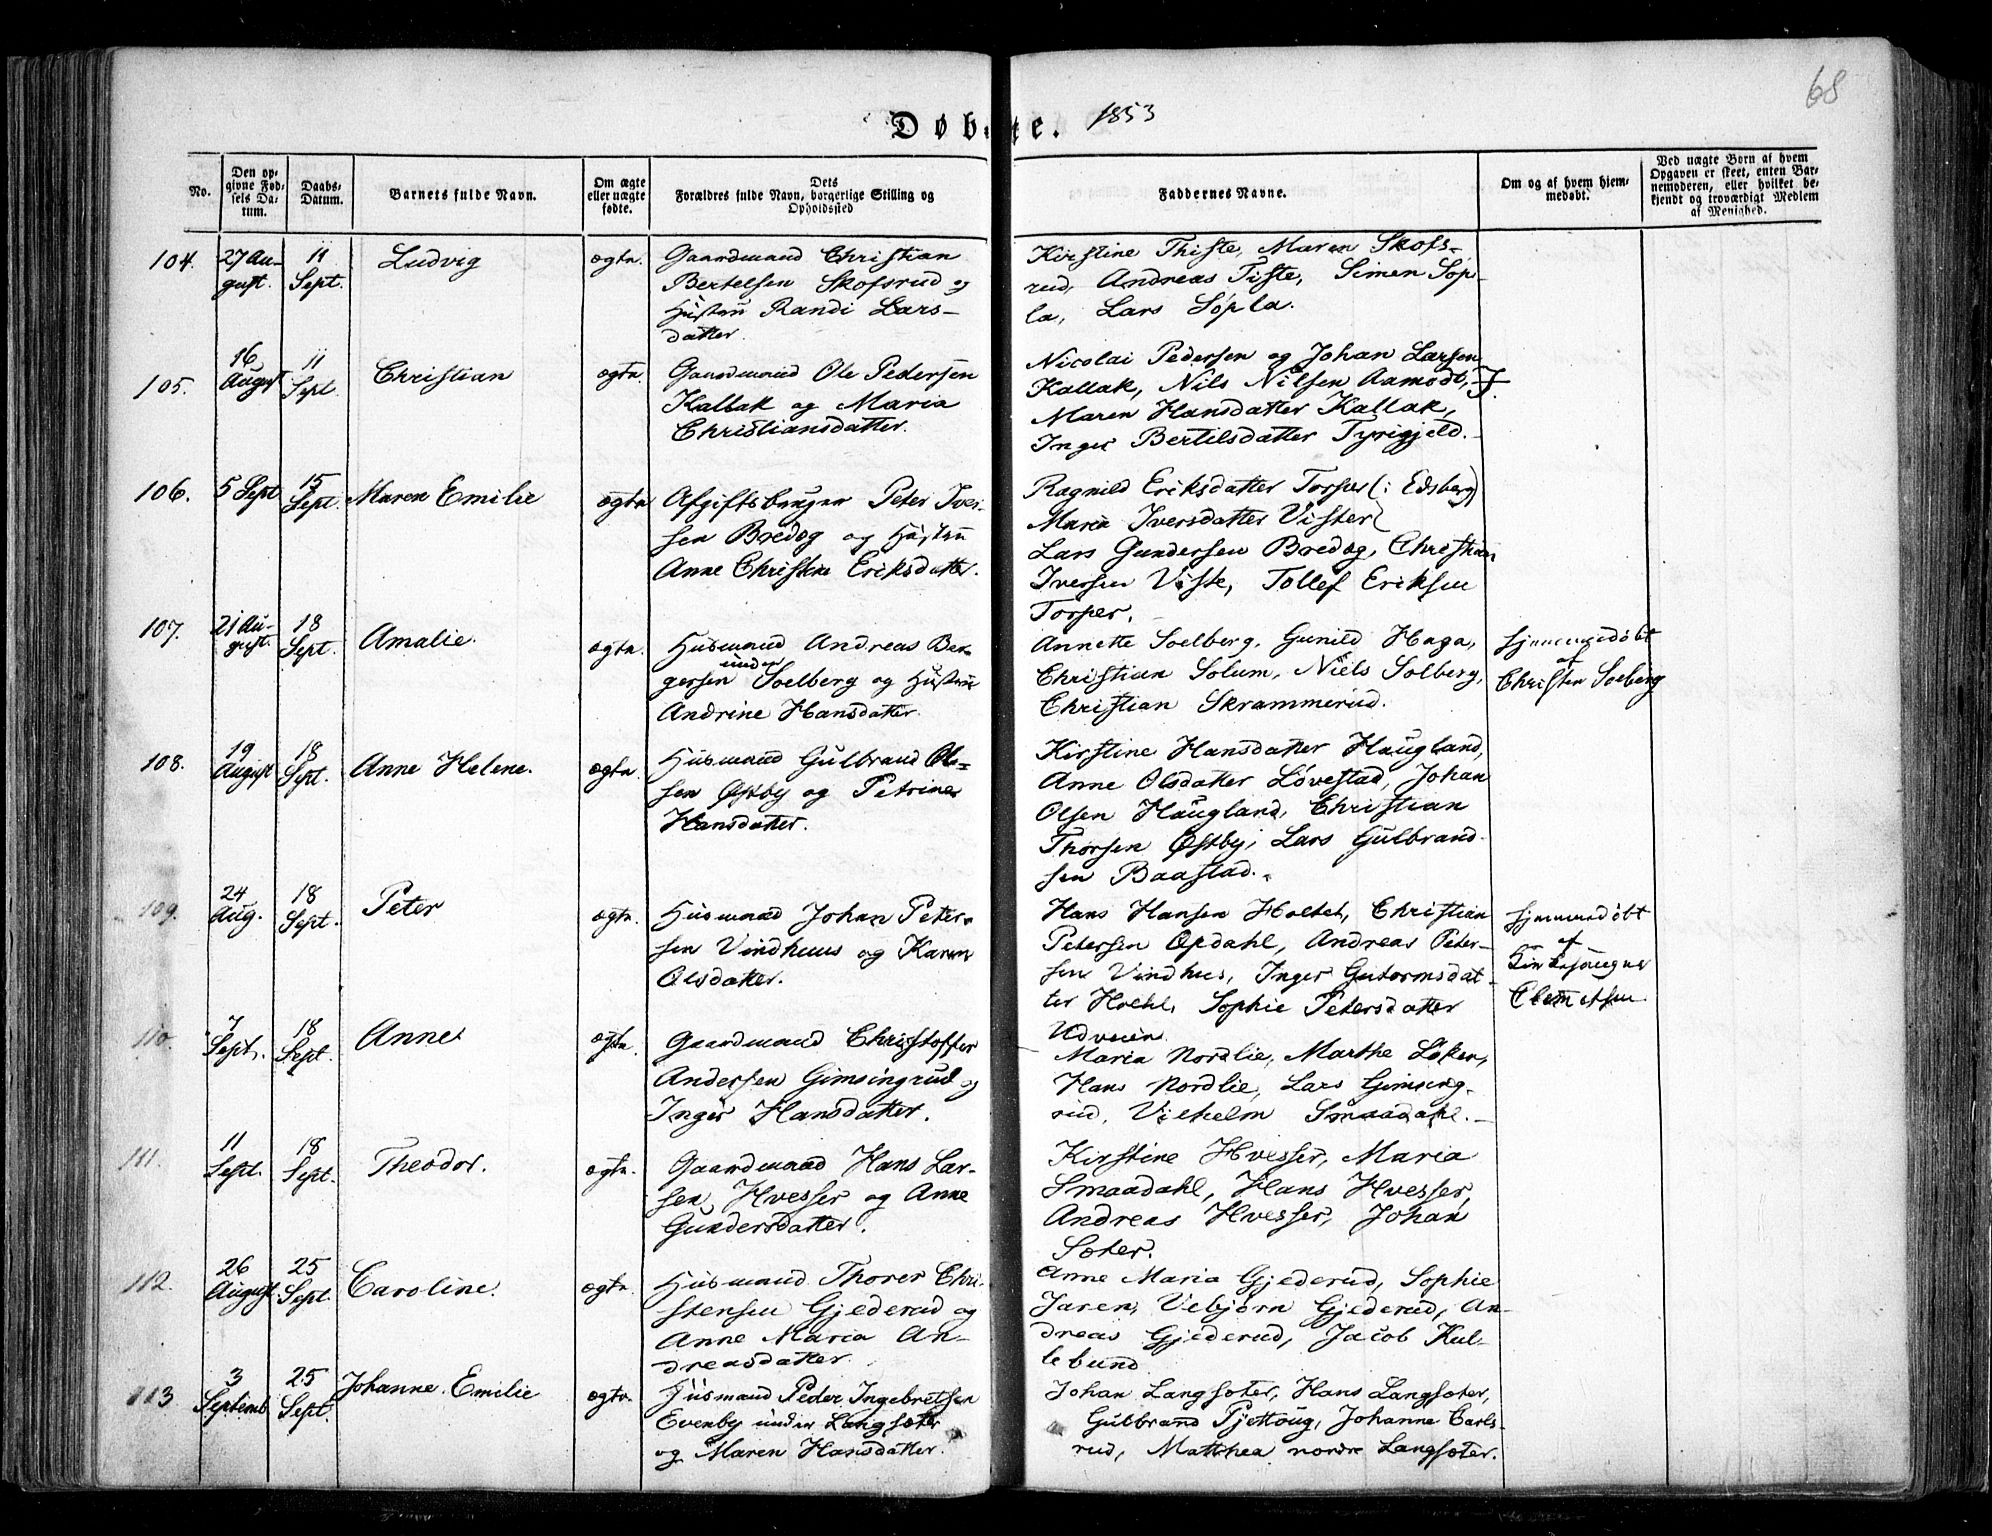 68
Døbte. 1853
No.
Den op-
givne Fød-
sels Da-
tum.
Daabs-
Datum.
Barnets fulde Navn.
Om ægte
eller uægte
fødte.
Dets
Forældres fulde Navn, borgerlige Stilling og
Opholdssted
Faddernes Navne.
Om og af hvem hjem-
medøbt.
Ved uægte Børn af hvem
Opgaven er skeet, enten Bar-
nemoderen, eller hvilket be-
kjendt og troværdigt Medlem
af Menighed.
104.
27 Au-
gust.
11
Sept.
Ludvig
ægte.
Gaardmand Christian
Bertelsen Skofsrud og
Hustru Randi Lars-
datter.
Kirstine Thiste, Maren Skofs-
rud, Andreas Tiste, Simen Søp-
la, Lars Søpla.
105.
16
August
11
Sept.
Christian
ægte.
Gaardmand Ole Pedersen
Kallak og Maria
Christiansdatter.
Nicolai Pedersen og Johan Larsen
Kallak, Nils Nilsen Aamodt,
Maren Hansdatter Kallak,
Inger Bertilsdatter Tyrigjeld.
106.
5 Sept
15
Sept.
Maren Emilie
ægte
Afgiftsbruger Peter Iver-
sen Bredøg og Hustru
Anne Christine Eriksdatter.
Ragnild Eriksdatter Torper (i Edsberg)
Maria Iversdatter Vister
Lars Gundersen Bredøg, Christian
Iversen Viste, Tollef Eriksen
Torper.
107.
21 Au-
gust.
18
Sept.
Amalie.
ægte.
Husmand Andreas Ber-
gersen under Soelberg og Hustru
Andrine Hansdatter.
Annette Soelberg, Gunild Haga,
Christian Solum, Niels Solberg,
Christian Skrammerud.
Hjemmedøbt
af
Christen Soelberg
108.
19
August
18
Sept.
Anne Helene.
ægte.
Husmand Gulbrand Ol-
sen Østby og Petrine
Hansdatter.
Kirstine Hansdatter Haugland,
Anne Olsdatter Løvestad, Johan
Olsen Haugland, Christian
Thorsen Østby, Lars Gulbrand-
sen Baastad.
109.
24
Aug.
18
Sept.
Peter
ægte.
Husmand Johan Peter-
sen Vindhuus og Karen
Olsdatter.
Hans Hansen Holtet, Christian
Petersen Opdahl, Andreas Peter-
sen Vindhus, Inger Gutormsdat-
ter Hoehl, Sophie Petersdatter
Udveien.
Hjemmedøbt
af
Clemetsen.
110.
7
Sept.
18
Sept.
Anne
ægte.
Gaardmand Christoffer
Andersen Gimsingrud og
Inger Hansdatter.
Maria Nordlie, Marthe Løken,
Hans Nordlie, Lars Gimsing-
rud, Vilhelm Smaadahl.
111.
11
Sept.
18
Sept.
Theodor.
ægte.
Gaardmand Hans Lar-
sen Hvesser og Anne
Gundersdatter.
Kirstine Hvesser, Maria
Smaadahl, Hans Hvesser,
Andreas Hvesser, Johan
Sæter.
112.
26
August
25
Sept.
Caroline.
ægte.
Husmand Thorer Chri-
stensen Gjederud og
Anne Maria An-
dreasdatter.
Anne Maria Gjederud, Sophie
Jaren, Vebjørn Gjederud, An-
dreas Gjederud, Jacob Kul-
lebund
113
3
Septemb
25
Sept.
Johanne Emilie
ægte.
Husmand Peder Ingebretsen
Evenby under Langsæter
og Maren Hansdatter.
Johan Langsæter, Hans Langsæter,
Gulbrand Tjettoug, Johanne Carls-
rud, Matthea nordre Langsæter.